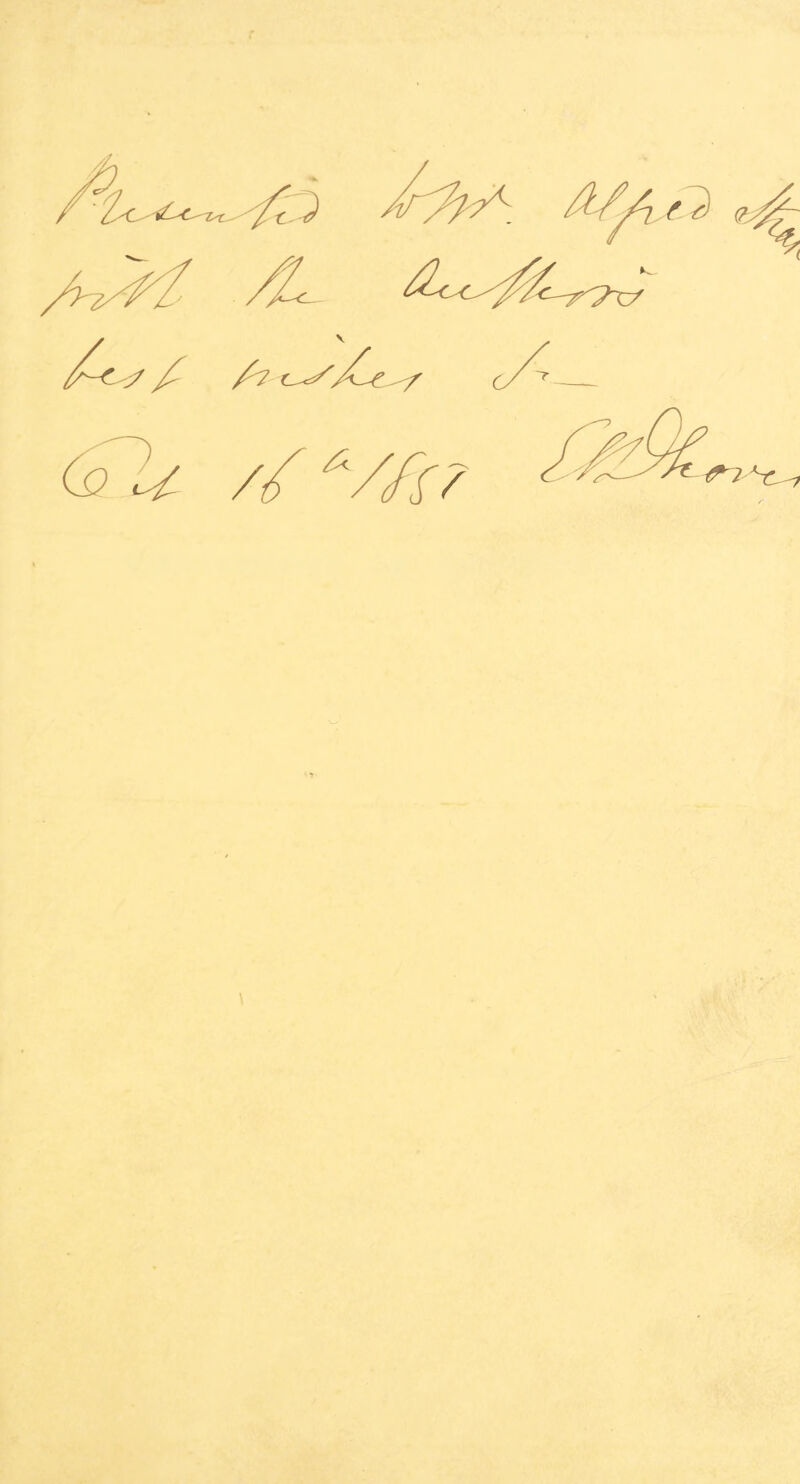 Presented to Mr. Alfred
with the Author's
best wishes &c—
Oct 16th/857